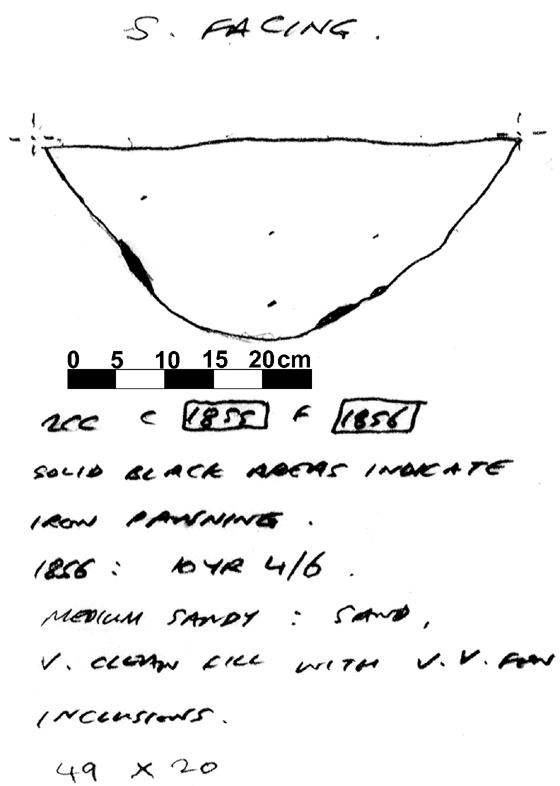 S. FACING.
0 5 10 15 20cm
C 1855 F 1856
SOLID BLACK AREAS INDICATE
IRON PANNING.
1856: 10YR 4/6.
MEDIUM SANDY: SAND,
V. CLEAN FILL WITH V. V. FEW
INCLUSIONS.
49 X 20